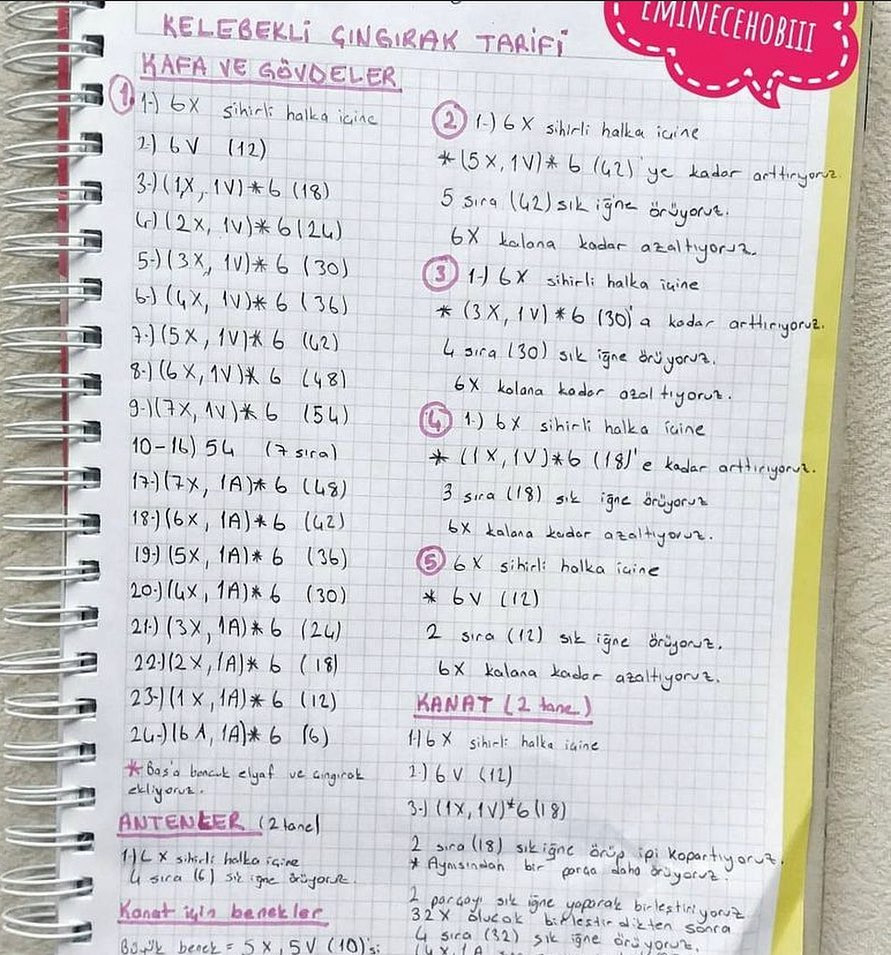 KELEBEKLİ ÇINGIRAK TARİFİ
EMINECEHOBIII
KAFA VE GÖVDELER
① 1-) 6X sihirli halka içine
2-) 6V (12)
3-) (1X, 1V)* 6 (18)
4-) (2X, 1V)* 6 (24)
5-) (3X, 1V)* 6 (30)
6-) (4X, 1V)* 6 (36)
7-) (5X, 1V)* 6 (42)
8-) (6X, 1V)* 6 (48)
9-) (7X, 1V)* 6 (54)
10-16) 54 (7 sıra)
17-) (7X, 1A)* 6 (48)
18-) (6X, 1A)* 6 (42)
19-) (5X, 1A)* 6 (36)
20-) (4X, 1A)* 6 (30)
21-) (3X, 1A)* 6 (24)
22-) (2X, 1A)* 6 (18)
23-) (1X, 1A)* 6 (12)
24-) (6A, 1A)* 6 (6)
* Baş'a boncuk elyaf ve çıngırak
ekliyoruz.
ANTENLER (2 tane)
1-) 6X sihirli halka içine
4 sıra (6) sık iğne örüyoruz.
Kanat için benekler
Büyük benek = 5X, 5V (10)'si
② 1-) 6X sihirli halka içine
* (5X, 1V)* 6 (42)'ye kadar arttırıyoruz.
5 sıra (42) sık iğne örüyoruz.
6X kalana kadar azaltıyoruz.
③ 1-) 6X sihirli halka içine
* (3X, 1V)* 6 (30)'a kadar arttırıyoruz.
4 sıra (30) sık iğne örüyoruz.
6X kalana kadar azaltıyoruz.
④ 1-) 6X sihirli halka içine
* (1X, 1V)* 6 (18)'e kadar arttırıyoruz.
3 sıra (18) sık iğne örüyoruz
6X kalana kadar azaltıyoruz.
⑤ 6X sihirli halka içine
* 6V (12)
2 sıra (12) sık iğne örüyoruz.
6X kalana kadar azaltıyoruz.
KANAT (2 tane)
1-) 6X sihirli halka içine
2-) 6V (12)
3-) (1X, 1V)* 6 (18)
2 sıra (18) sık iğne örüp ipi kopartıyoruz.
* Aynısından bir parça daha örüyoruz.
2 parçayı sık iğne yaparak birleştiriyoruz
32X olucak birleştirdikten sonra
4 sıra (32) sık iğne örüyoruz.
(4X, 1A